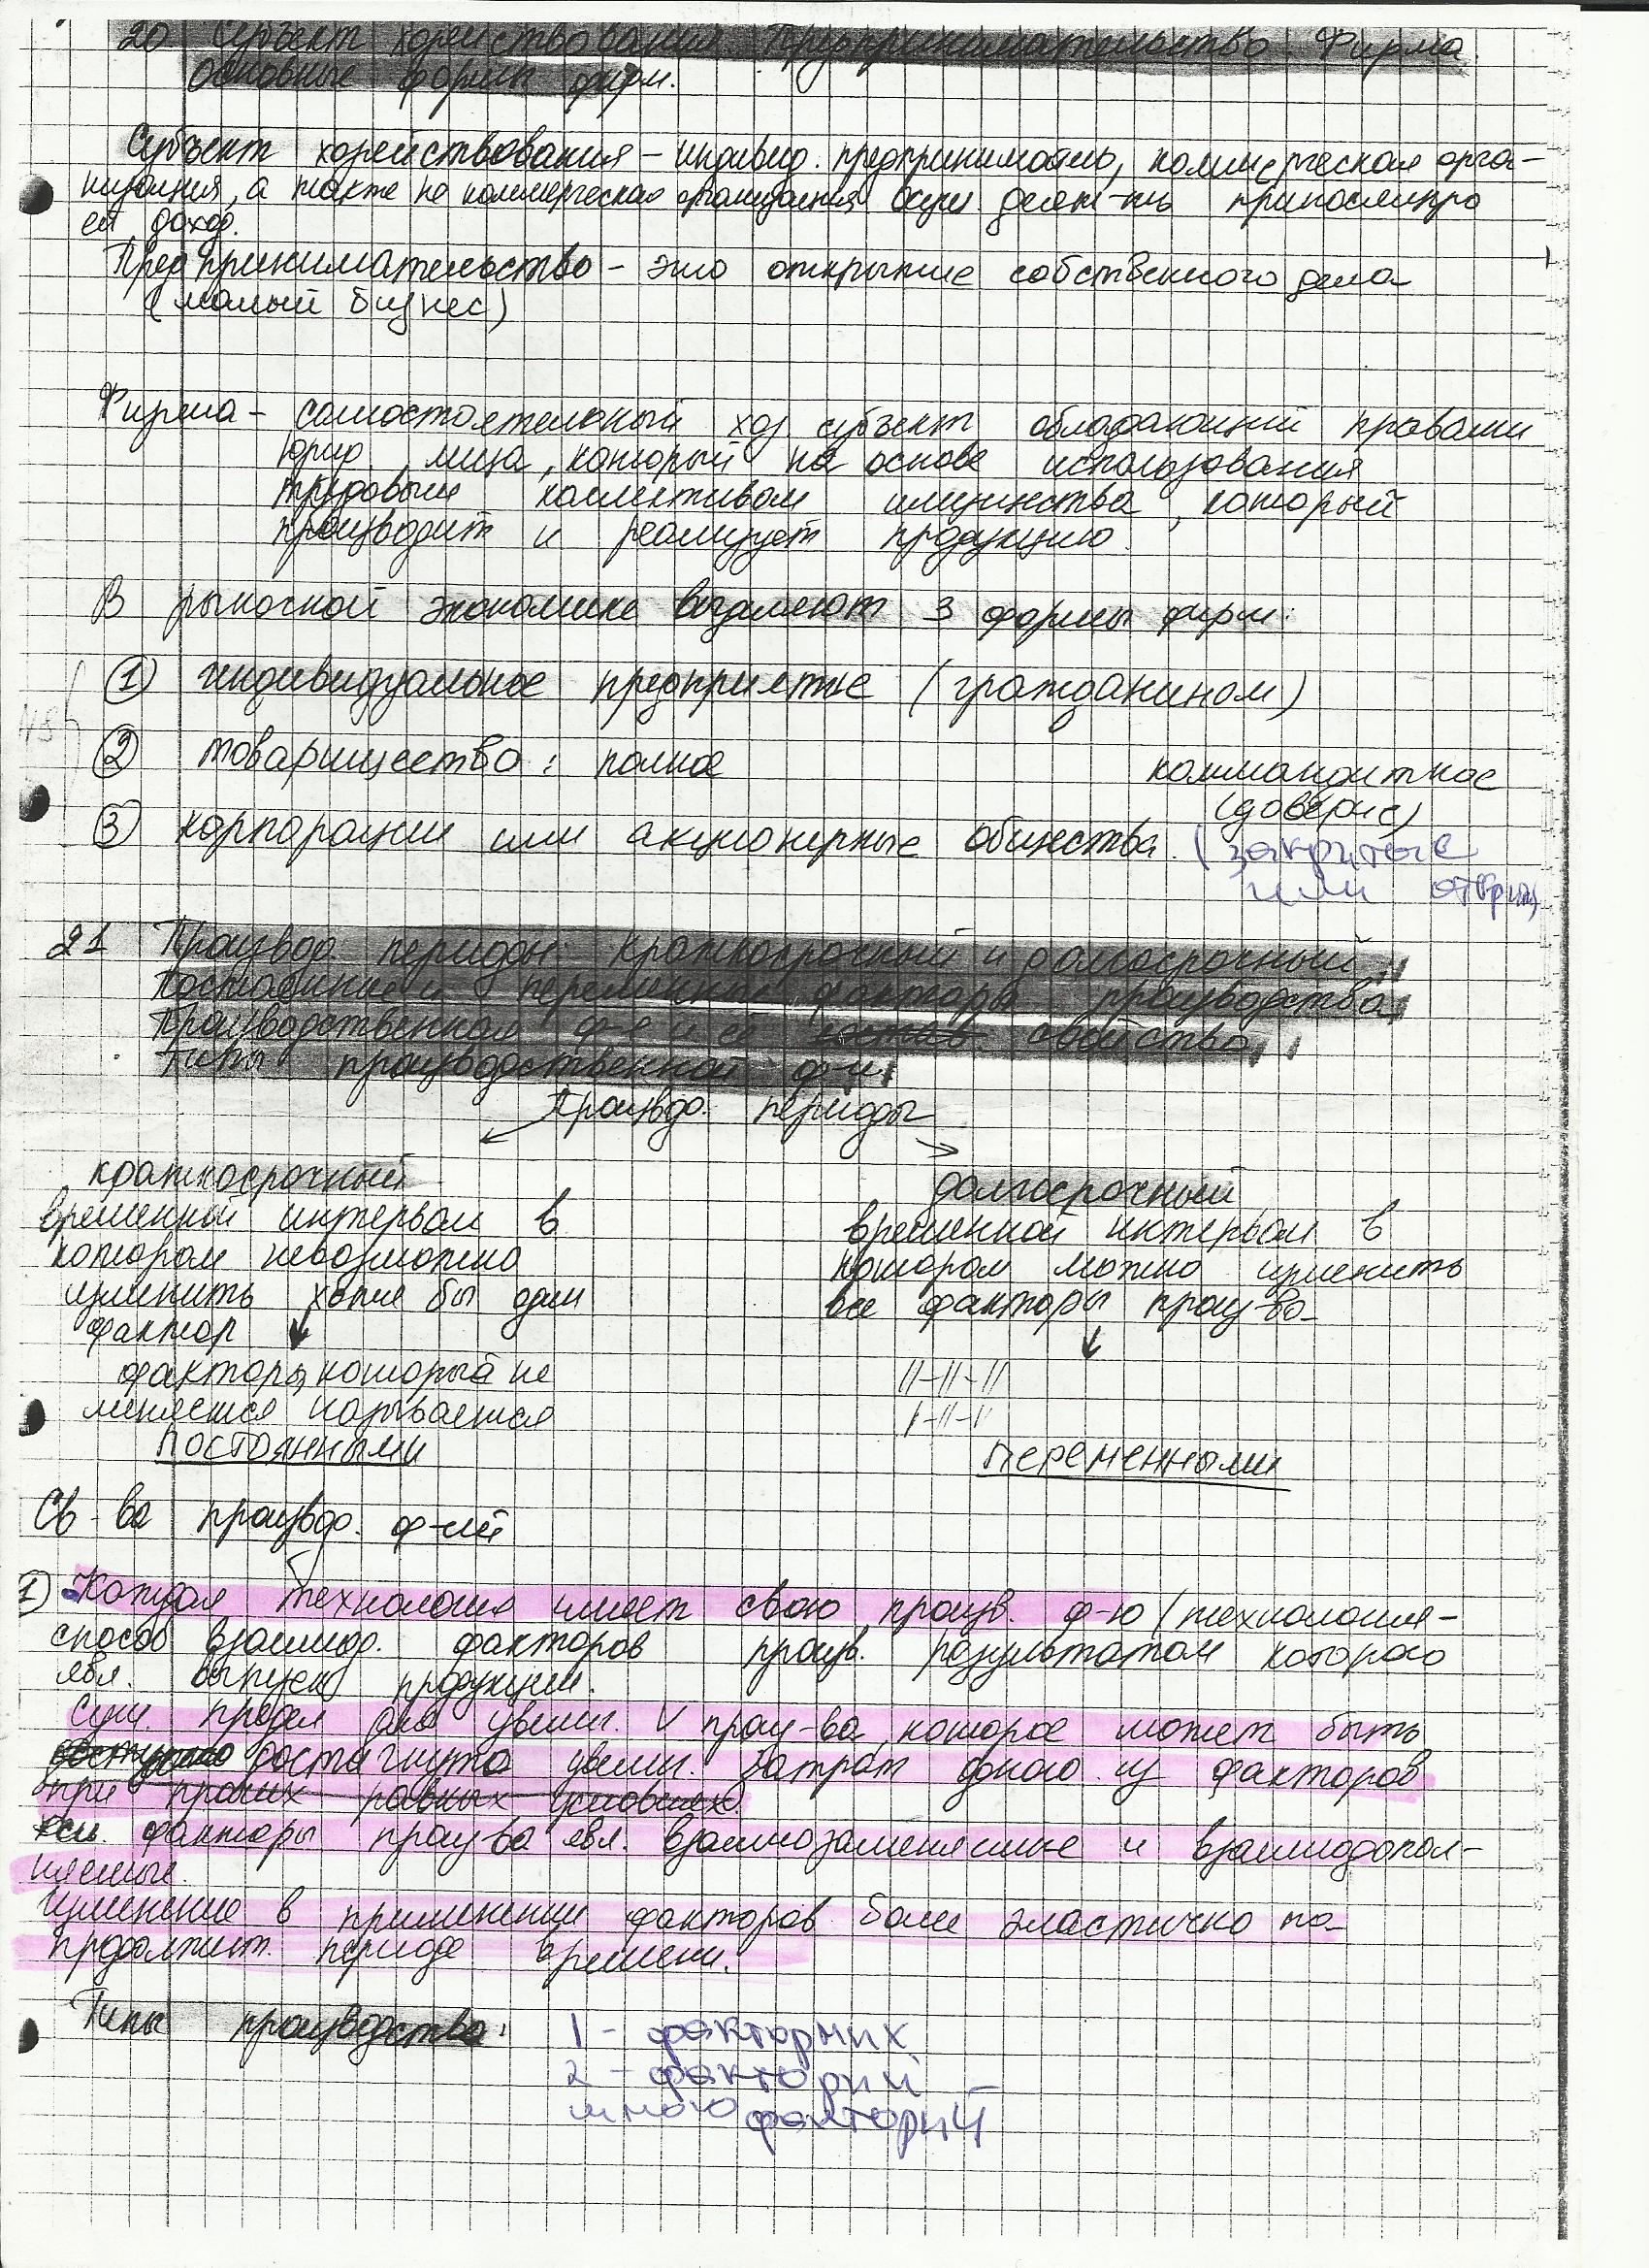 20 Субъект хозяйствования Предпринимательство. Фирма
Основные формы фирм.
Субъект хозяйствования – индивид. предприниматель, коммерческая орга-
низация, а также не коммерческая организация осущ. деят-ть приносящую
ей доход.
Предпринимательство – это открытие собственного дела
(малый бизнес)
Фирма – самостоятельный хоз. субъект обладающий правами
юрид. лица, который на основе использования
трудовым коллективом имущества, который
производит и реализует продукцию.
В рыночной экономике выделяют 3 формы фирм:
① индивидуальное предприятие (гражданином)
② товарищество: полное коммандитное
(доверие)
③ корпорации или акционерные общества. (закрытые
или откры)
21 Производ. периоды: краткосрочный и долгосрочный,
Постоянные и переменные факторы производства,
Производственная ф-я и её свойства,
типы производственной ф-и.
Произвдо. периоды
краткосрочный долгосрочный
временной интервал в временной интервал в
котором невозможно котором можно изменить
изменить хотя бы один все факторы произ-ва
фактор
факторы, который не //-//-//
меняется называется //-//-//
постоянными переменными
Св-ва произвдо. ф-ий
1) Каждая технология имеет свою произв. ф-ю (технология-
способ взаимод. факторов произв. результатом которого
явл. выпуск продукции.
Сущ. предел для увелич. V произ-ва, которое может быть
достигнуто увелич. затрат одного из факторов
при прочих равных условиях)
факторы произ-ва явл. взаимозаменяемые и взаимодопол-
няемые.
Изменение в применении факторов более эластично на
продолжит. периоде времени.
Типы производства: 1 - факторних
2 - факторий -
много факториц